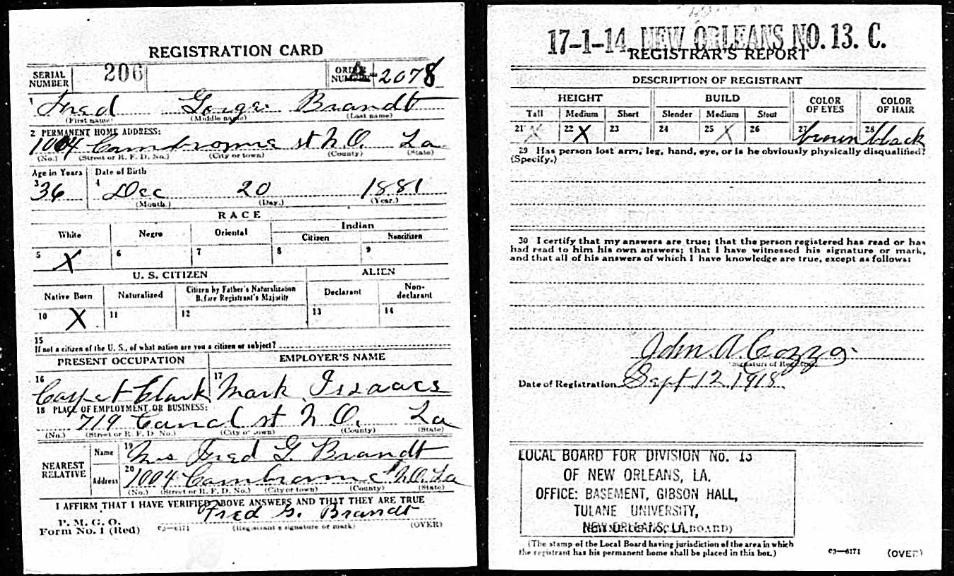 REGISTRATION CARD
SERIAL NUMBER 206 ORDER NUMBER A-2078
1 Fred George Brandt
(First name) (Middle name) (Last name)
2 PERMANENT HOME ADDRESS:
1004 st N.O. La
(No.) (Street or R. F. D. No.) (City or town) (County) (State)
Age in Years Date of Birth
3 36 4 Dec 20 1881
(Month.) (Day.) (Year.)
RACE
White Negro Oriental Indian
Citizen Noncitizen
5 X 6 7 8 9
U. S. CITIZEN ALIEN
Native Born Naturalized Citizen by Father's Naturalization Before Registrant's Majority Declarant Non-declarant
10 X 11 12 13 14
15
If not a citizen of the U. S., of what nation are you a citizen or subject?
PRESENT OCCUPATION EMPLOYER'S NAME
16 Carpet Clark 17 Mark Isaacs
18 PLACE OF EMPLOYMENT OR BUSINESS:
719 Canal st N.O. La
(No.) (Street or R. F. D. No.) (City or town) (County) (State)
NEAREST RELATIVE
Name 19 Mrs Fred G Brandt
Address 20 1004 N.O. La
(No.) (Street or R. F. D. No.) (City or town) (County) (State)
I AFFIRM THAT I HAVE VERIFIED ABOVE ANSWERS AND THAT THEY ARE TRUE
Fred G. Brandt
P. M. G. O.
Form No. 1 (Red) c3—6171 (Registrant's signature or mark) (OVER)
17-1-14 NEW ORLEANS NO. 13. C.
REGISTRAR'S REPORT
DESCRIPTION OF REGISTRANT
HEIGHT BUILD COLOR OF EYES COLOR OF HAIR
Tall Medium Short Slender Medium Stout
21 X 22 X 23 24 25 X 26 27 brown 28 black
29 Has person lost arm, leg, hand, eye, or is he obviously physically disqualified?
(Specify.)
30 I certify that my answers are true; that the person registered has read or has
had read to him his own answers; that I have witnessed his signature or mark,
and that all of his answers of which I have knowledge are true, except as follows:
John A. Cozzo
(Signature of Registrar)
Date of Registration Sept 12 1918
LOCAL BOARD FOR DIVISION No. 13
OF NEW ORLEANS, LA.
OFFICE: BASEMENT, GIBSON HALL,
TULANE UNIVERSITY,
NEW ORLEANS, LA.
(The stamp of the Local Board having jurisdiction of the area in which
the registrant has his permanent home shall be placed in this box.)
c3—6171 (OVER)